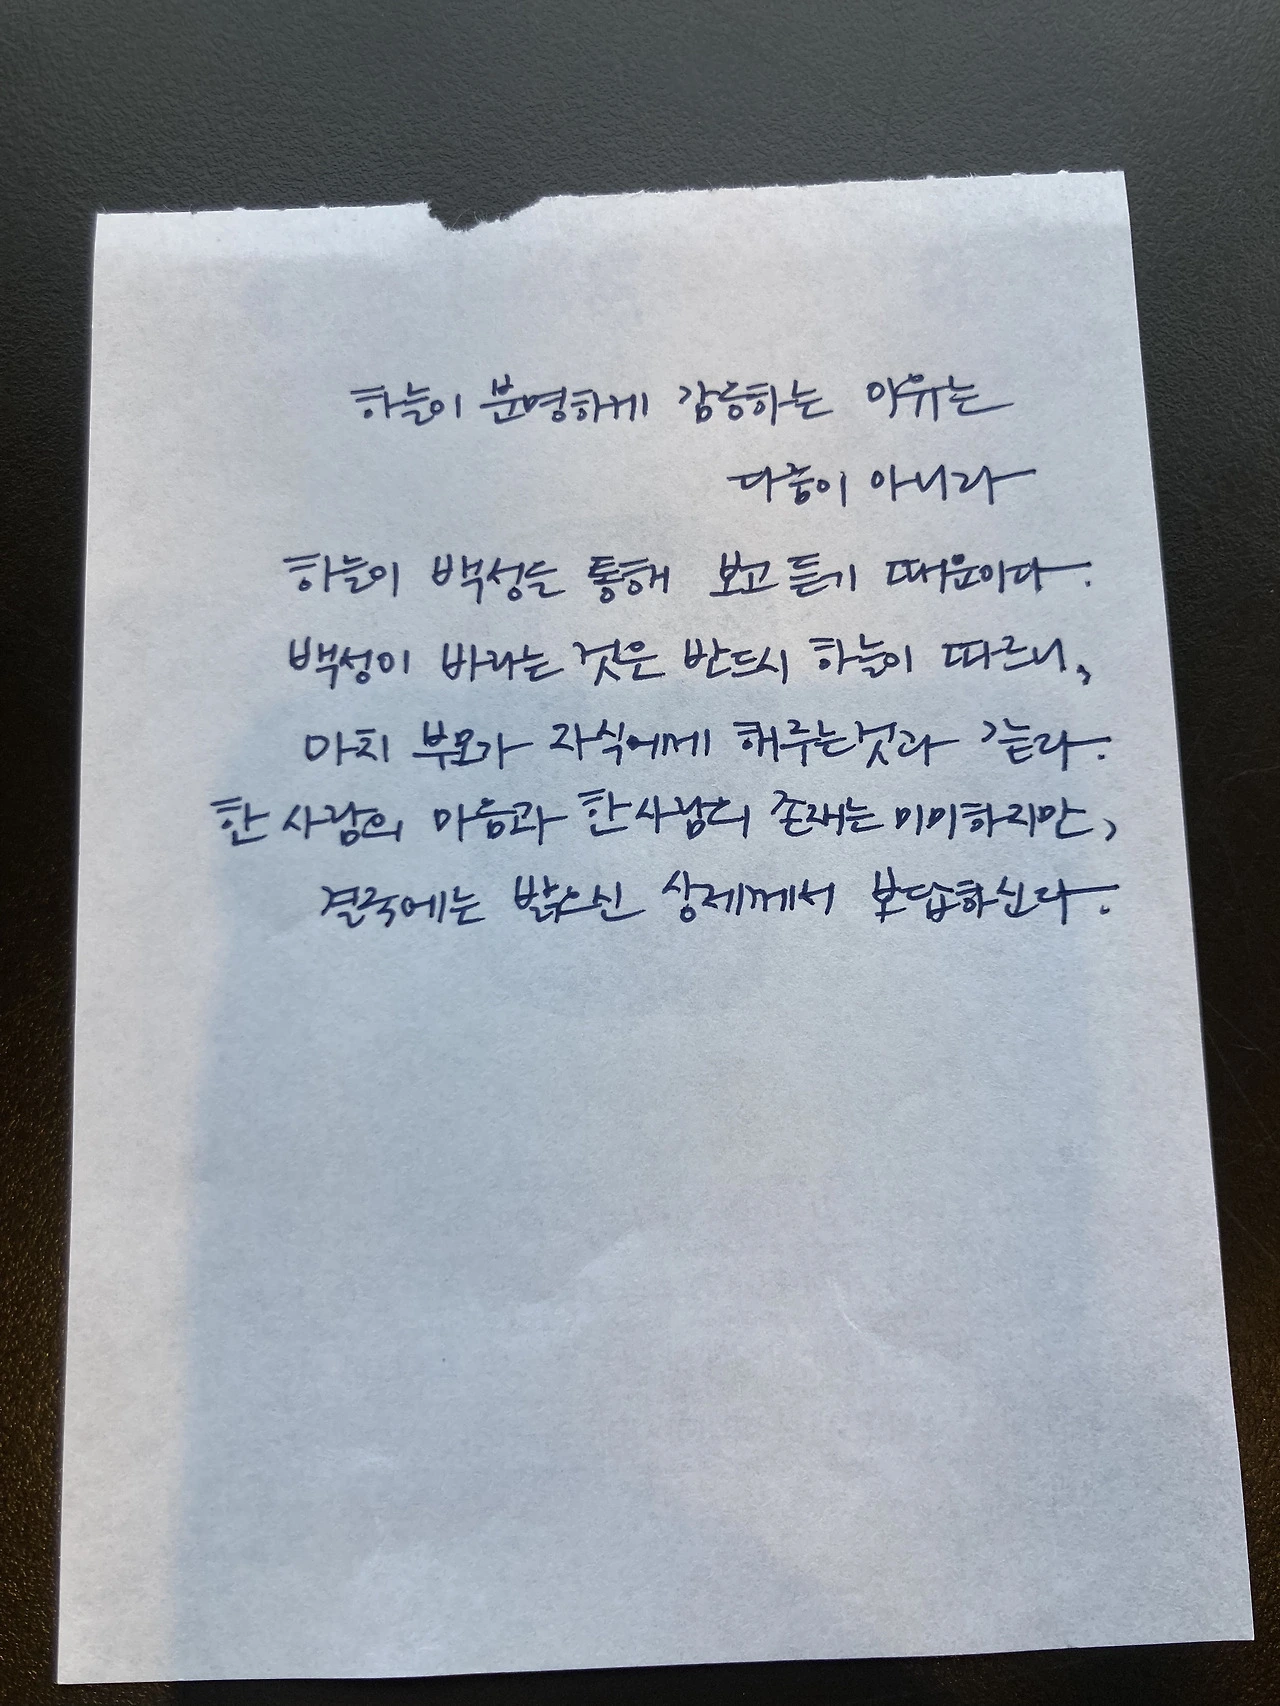 하늘이 분명하게 감응하는 이유는
다름이 아니라
하늘이 백성을 통해 보고 듣기 때문이다.
백성이 바라는 것은 반드시 하늘이 따르니,
마치 부모가 자식에게 해주는것과 같다.
한 사람의 마음과 한 사람의 존재는 미미하지만,
결국에는 밝으신 상제께서 보답하신다.